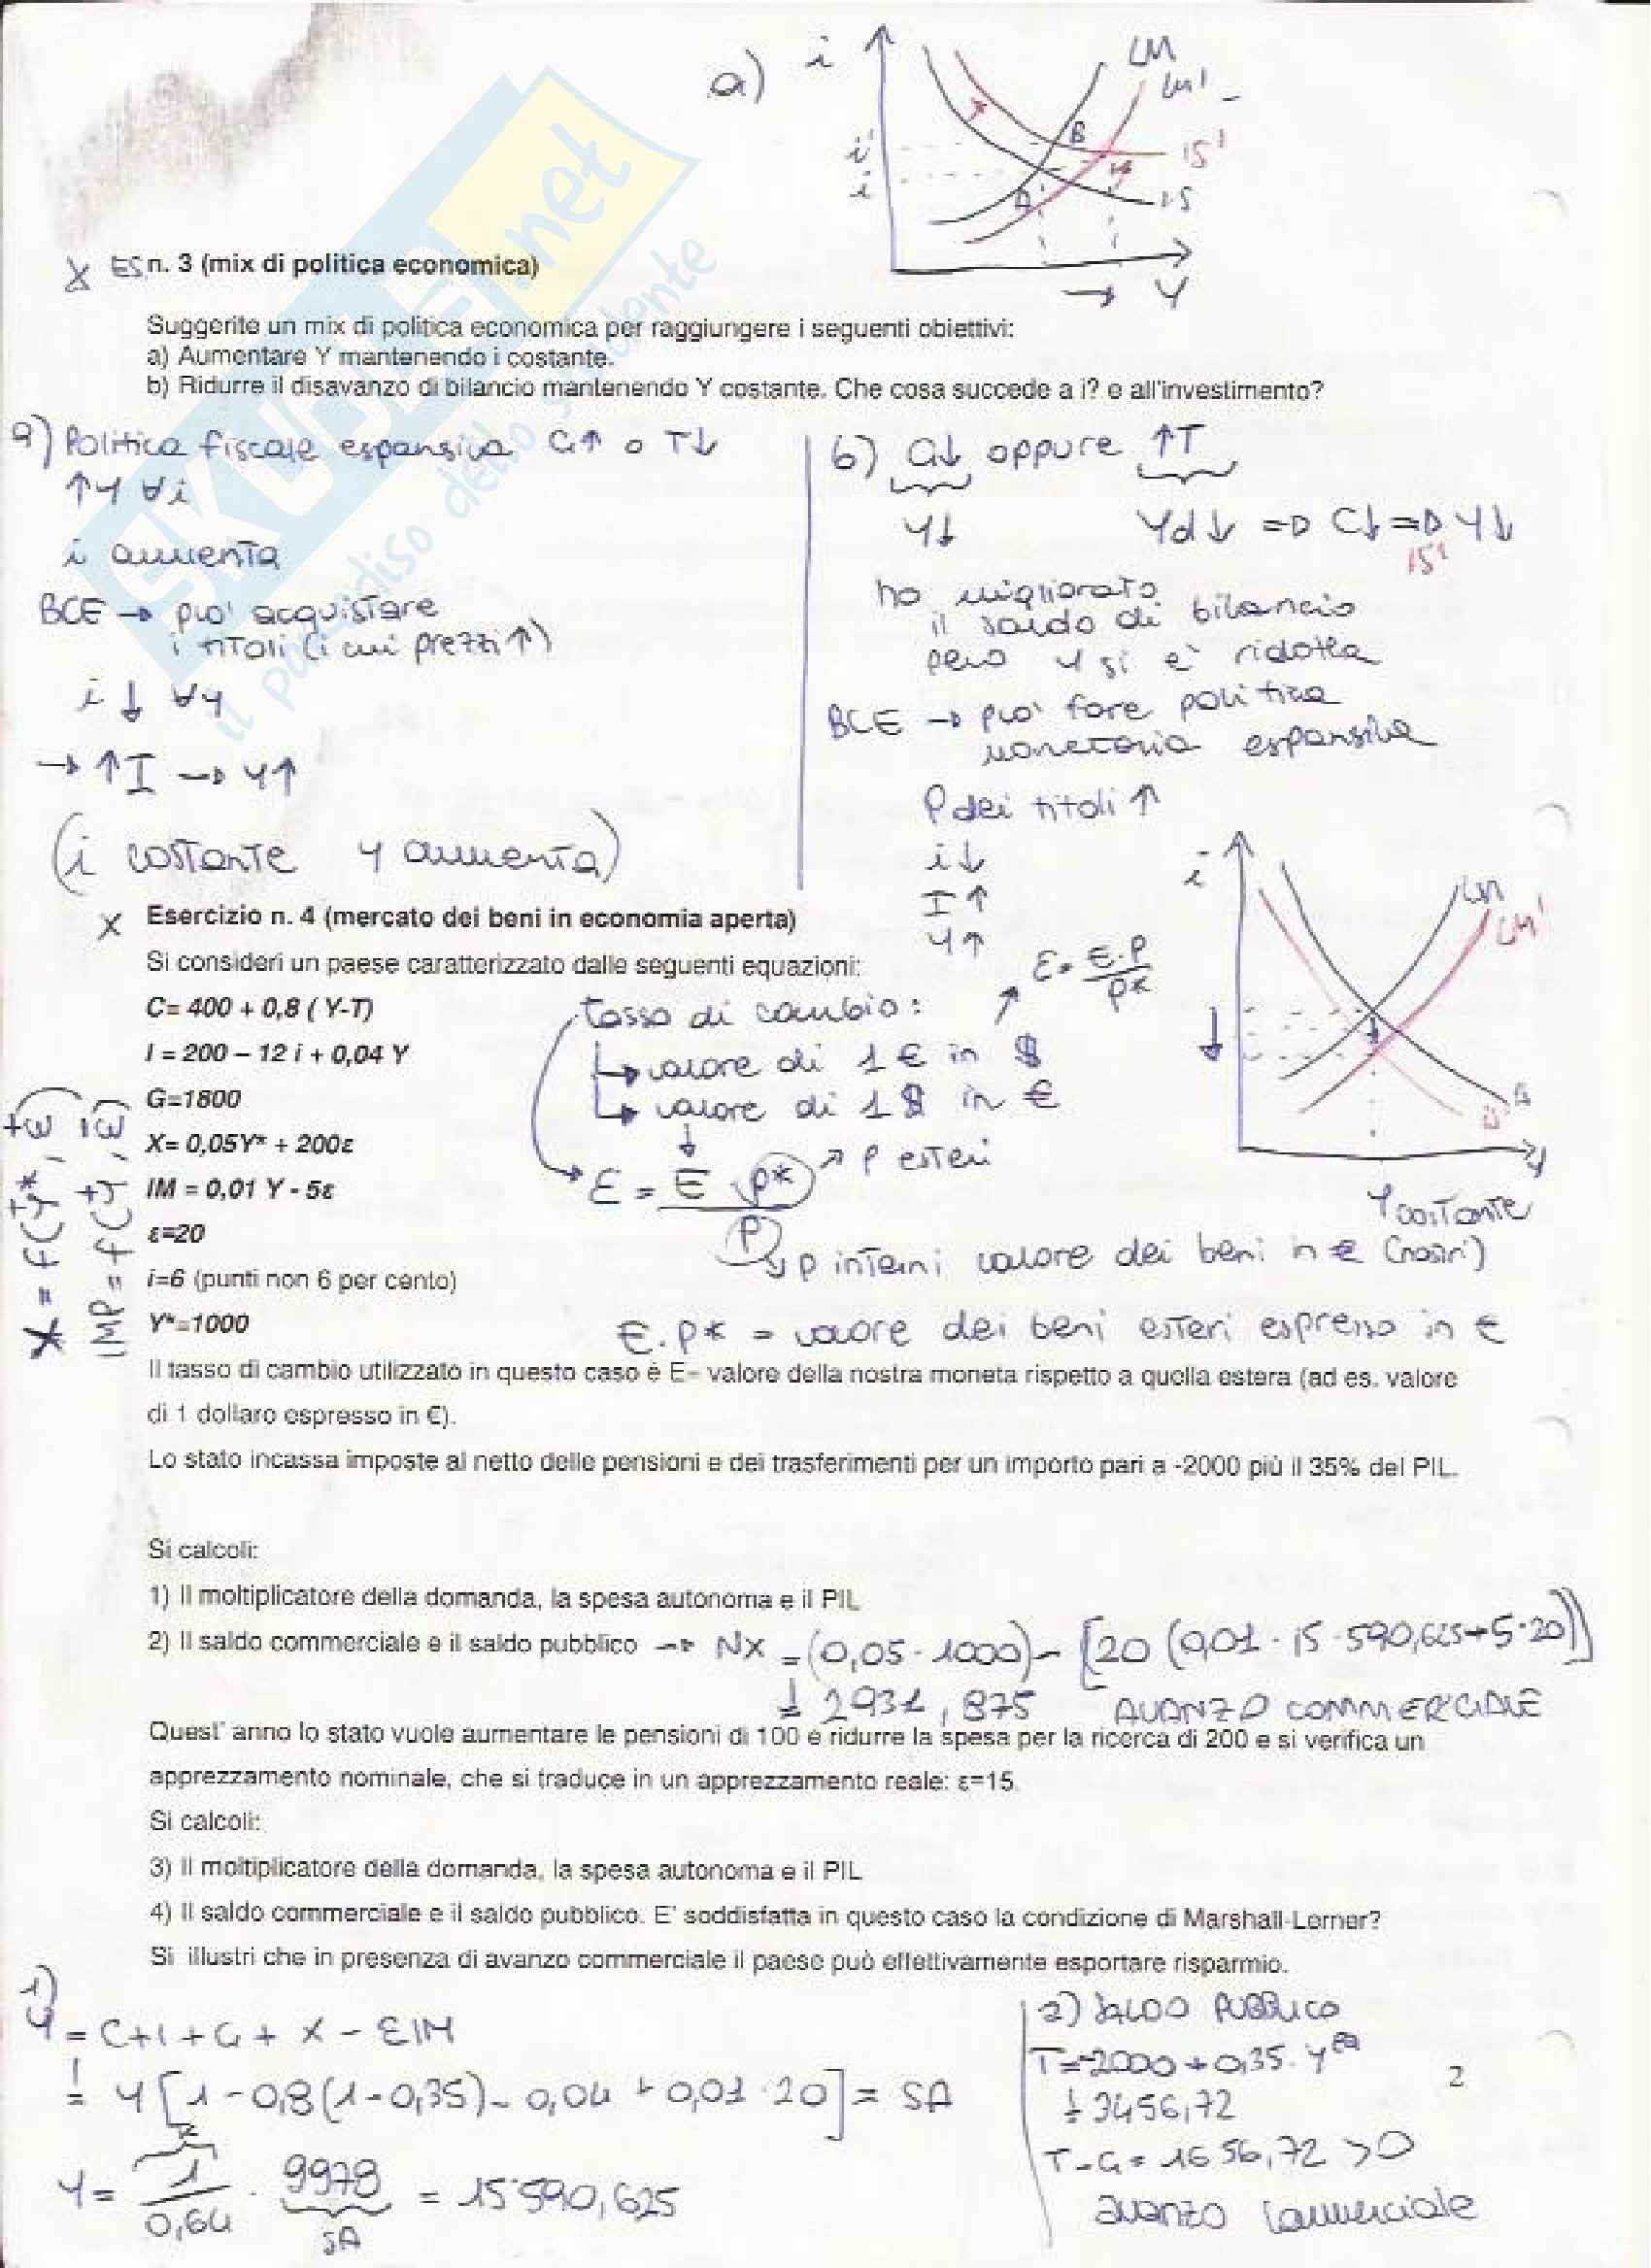 a)
i
LM
LM'
B
IS'
i'
i
A
IS
→ Y
X ES n. 3 (mix di politica economica)
Suggerite un mix di politica economica per raggiungere i seguenti obiettivi:
a) Aumentare Y mantenendo i costante.
b) Ridurre il disavanzo di bilancio mantenendo Y costante. Che cosa succede a i? e all'investimento?
a) Politica fiscale espansiva G↑ o T↓
↑Y ∀i
i aumenta
BCE → puo' acquistare
i titoli (i cui prezzi↑)
i ↓ ∀Y
→ ↑I → Y↑
(i costante Y aumenta)
b) G↓ oppure ↑T
Y↓ Yd↓ => C↓ => Y↓
IS'
ho migliorato
il saldo di bilancio
pero Y si e' ridotta
BCE → puo' fare politica
monetaria espansiva
P dei titoli ↑
i↓
I↑
Y↑
i
LM
LM'
IS
IS'
Y
Y costante
X Esercizio n. 4 (mercato dei beni in economia aperta)
Si consideri un paese caratterizzato dalle seguenti equazioni:
C= 400 + 0,8 ( Y-T)
I = 200 – 12 i + 0,04 Y
G=1800
X= 0,05Y* + 200ε
IM = 0,01 Y - 5ε
ε=20
i=6 (punti non 6 per cento)
Y*=1000
X = f(Y*, ε)
+ +
IMP = f(Y, ε)
+ -
tasso di cambio:
ε = E·P / P*
valore di 1 € in $
valore di 1 $ in €
ε = E P* / P
P esteri
P interni valore dei beni in € (nostri)
E·P* = valore dei beni esteri espresso in €
Il tasso di cambio utilizzato in questo caso è E= valore della nostra moneta rispetto a quella estera (ad es. valore
di 1 dollaro espresso in €).
Lo stato incassa imposte al netto delle pensioni e dei trasferimenti per un importo pari a -2000 più il 35% del PIL.
Si calcoli:
1) Il moltiplicatore della domanda, la spesa autonoma e il PIL
2) Il saldo commerciale e il saldo pubblico → NX = (0,05·1000) - [20 (0,01·15·590,625+5·20)]
= 2931,875 AVANZO COMMERCIALE
Quest' anno lo stato vuole aumentare le pensioni di 100 e ridurre la spesa per la ricerca di 200 e si verifica un
apprezzamento nominale, che si traduce in un apprezzamento reale: ε=15.
Si calcoli:
3) Il moltiplicatore della domanda, la spesa autonoma e il PIL
4) Il saldo commerciale e il saldo pubblico. E' soddisfatta in questo caso la condizione di Marshall-Lerner?
Si illustri che in presenza di avanzo commerciale il paese può effettivamente esportare risparmio.
1)
Y = C+I+G+ X - εIM
= Y [1-0,8(1-0,35)-0,04+0,01·20] = SA
Y = 1/0,64 · 9978 = 15590,625
SA
2) SALDO PUBBLICO
T=-2000+0,35·Y^EQ
= 3456,72
T-G = 1656,72 >0
avanzo commerciale
2
SKUOLA.net
il paradiso dello studente